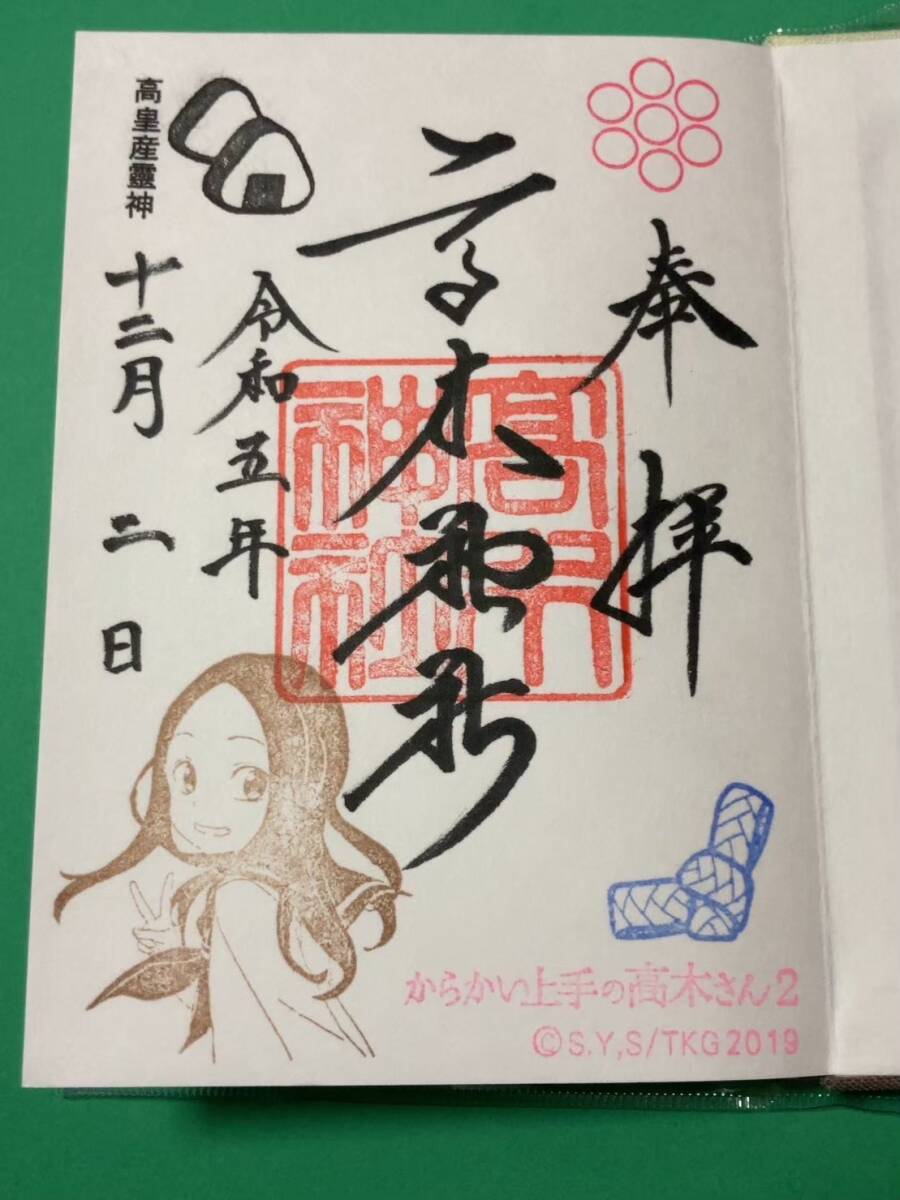 奉拝
高木神社
高木神社
令和五年
十二月二日
高皇産靈神
からかい上手の高木さん2
©S.Y,S/TKG2019